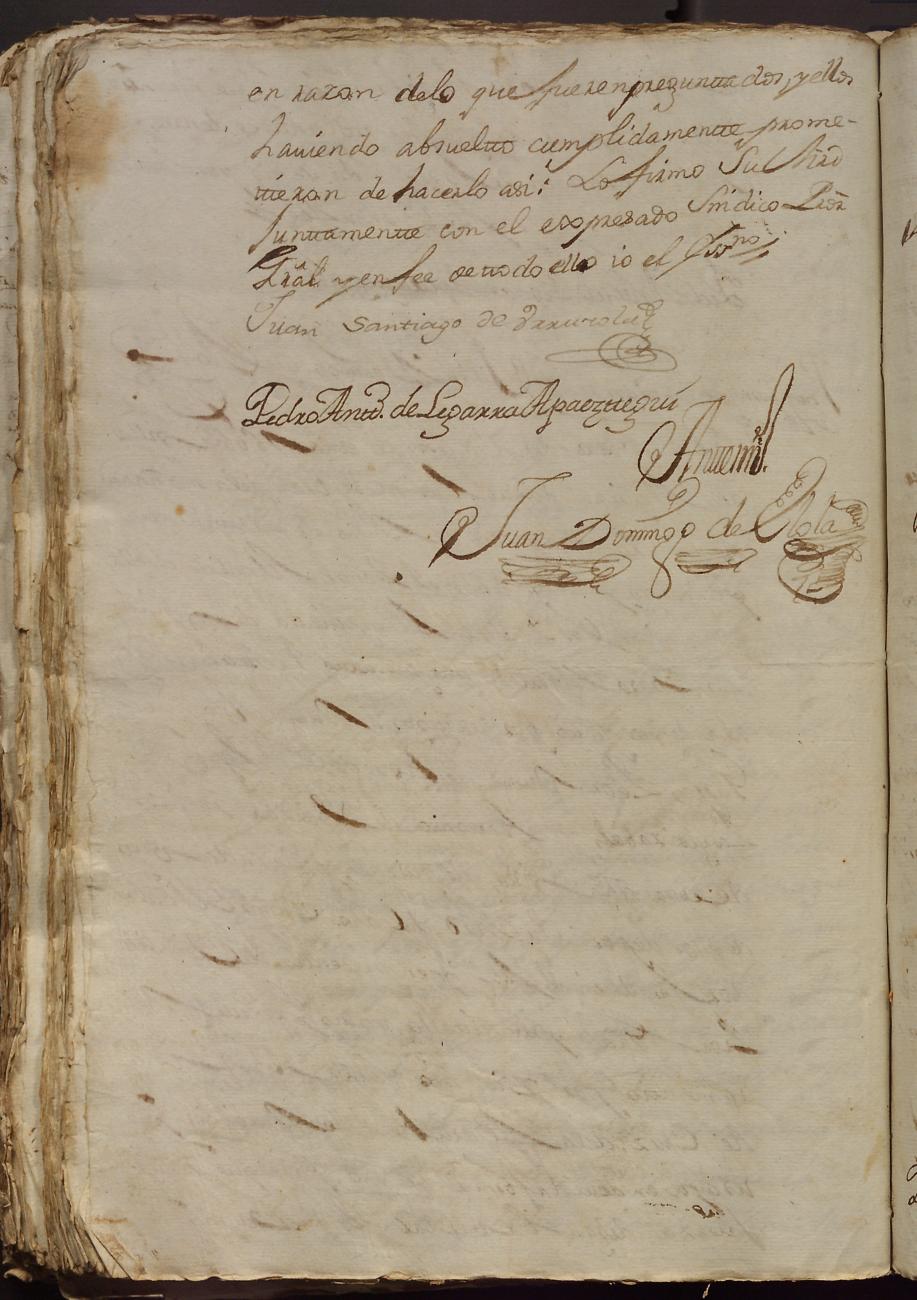 en razon delo que fueren preguntados, y ellos
haviendo absuelto cumplidamente prome-
tieron de hacerlo asi: Lo firmo Su Mrd
Juntamente con el expresado Sindico Pror
Gral y en fee de todo ello io el Essno
Juan Santiago de
Pedro Anto. de Legarra Apaeztegui
Antemi
Juan Domingo de